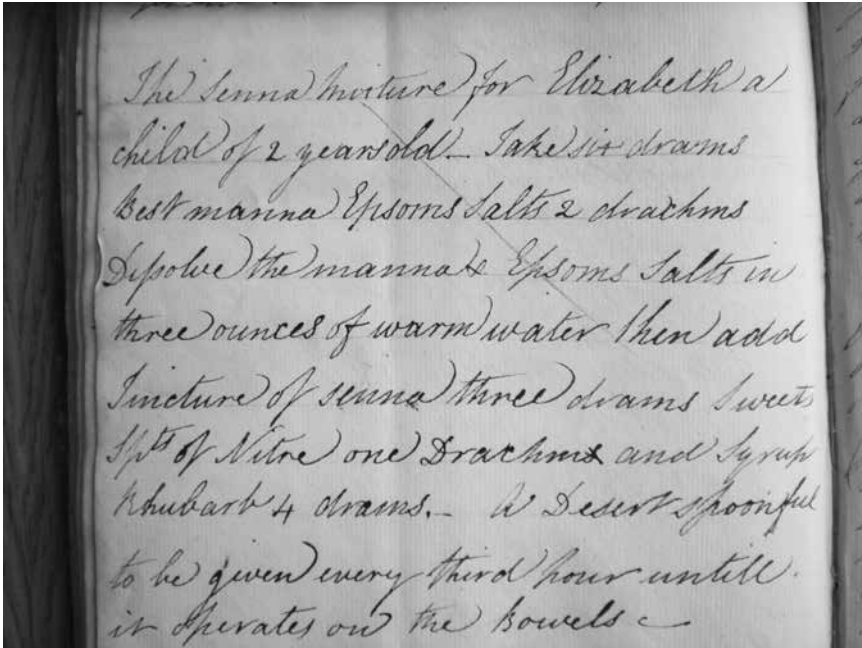 The Senna Mixture for Elizabeth a
child of 2 years old _ Take six drams
Best manna Epsoms Salts 2 drachms
Dissolve the manna & Epsoms Salts in
three ounces of warm water then add
Tincture of senna three drams Sweet
Spts of Nitre one Drachms and Syrup
Rhubarb 4 drams. _ A Desert spoonful
to be given every third hour untill
it operates on the Bowels